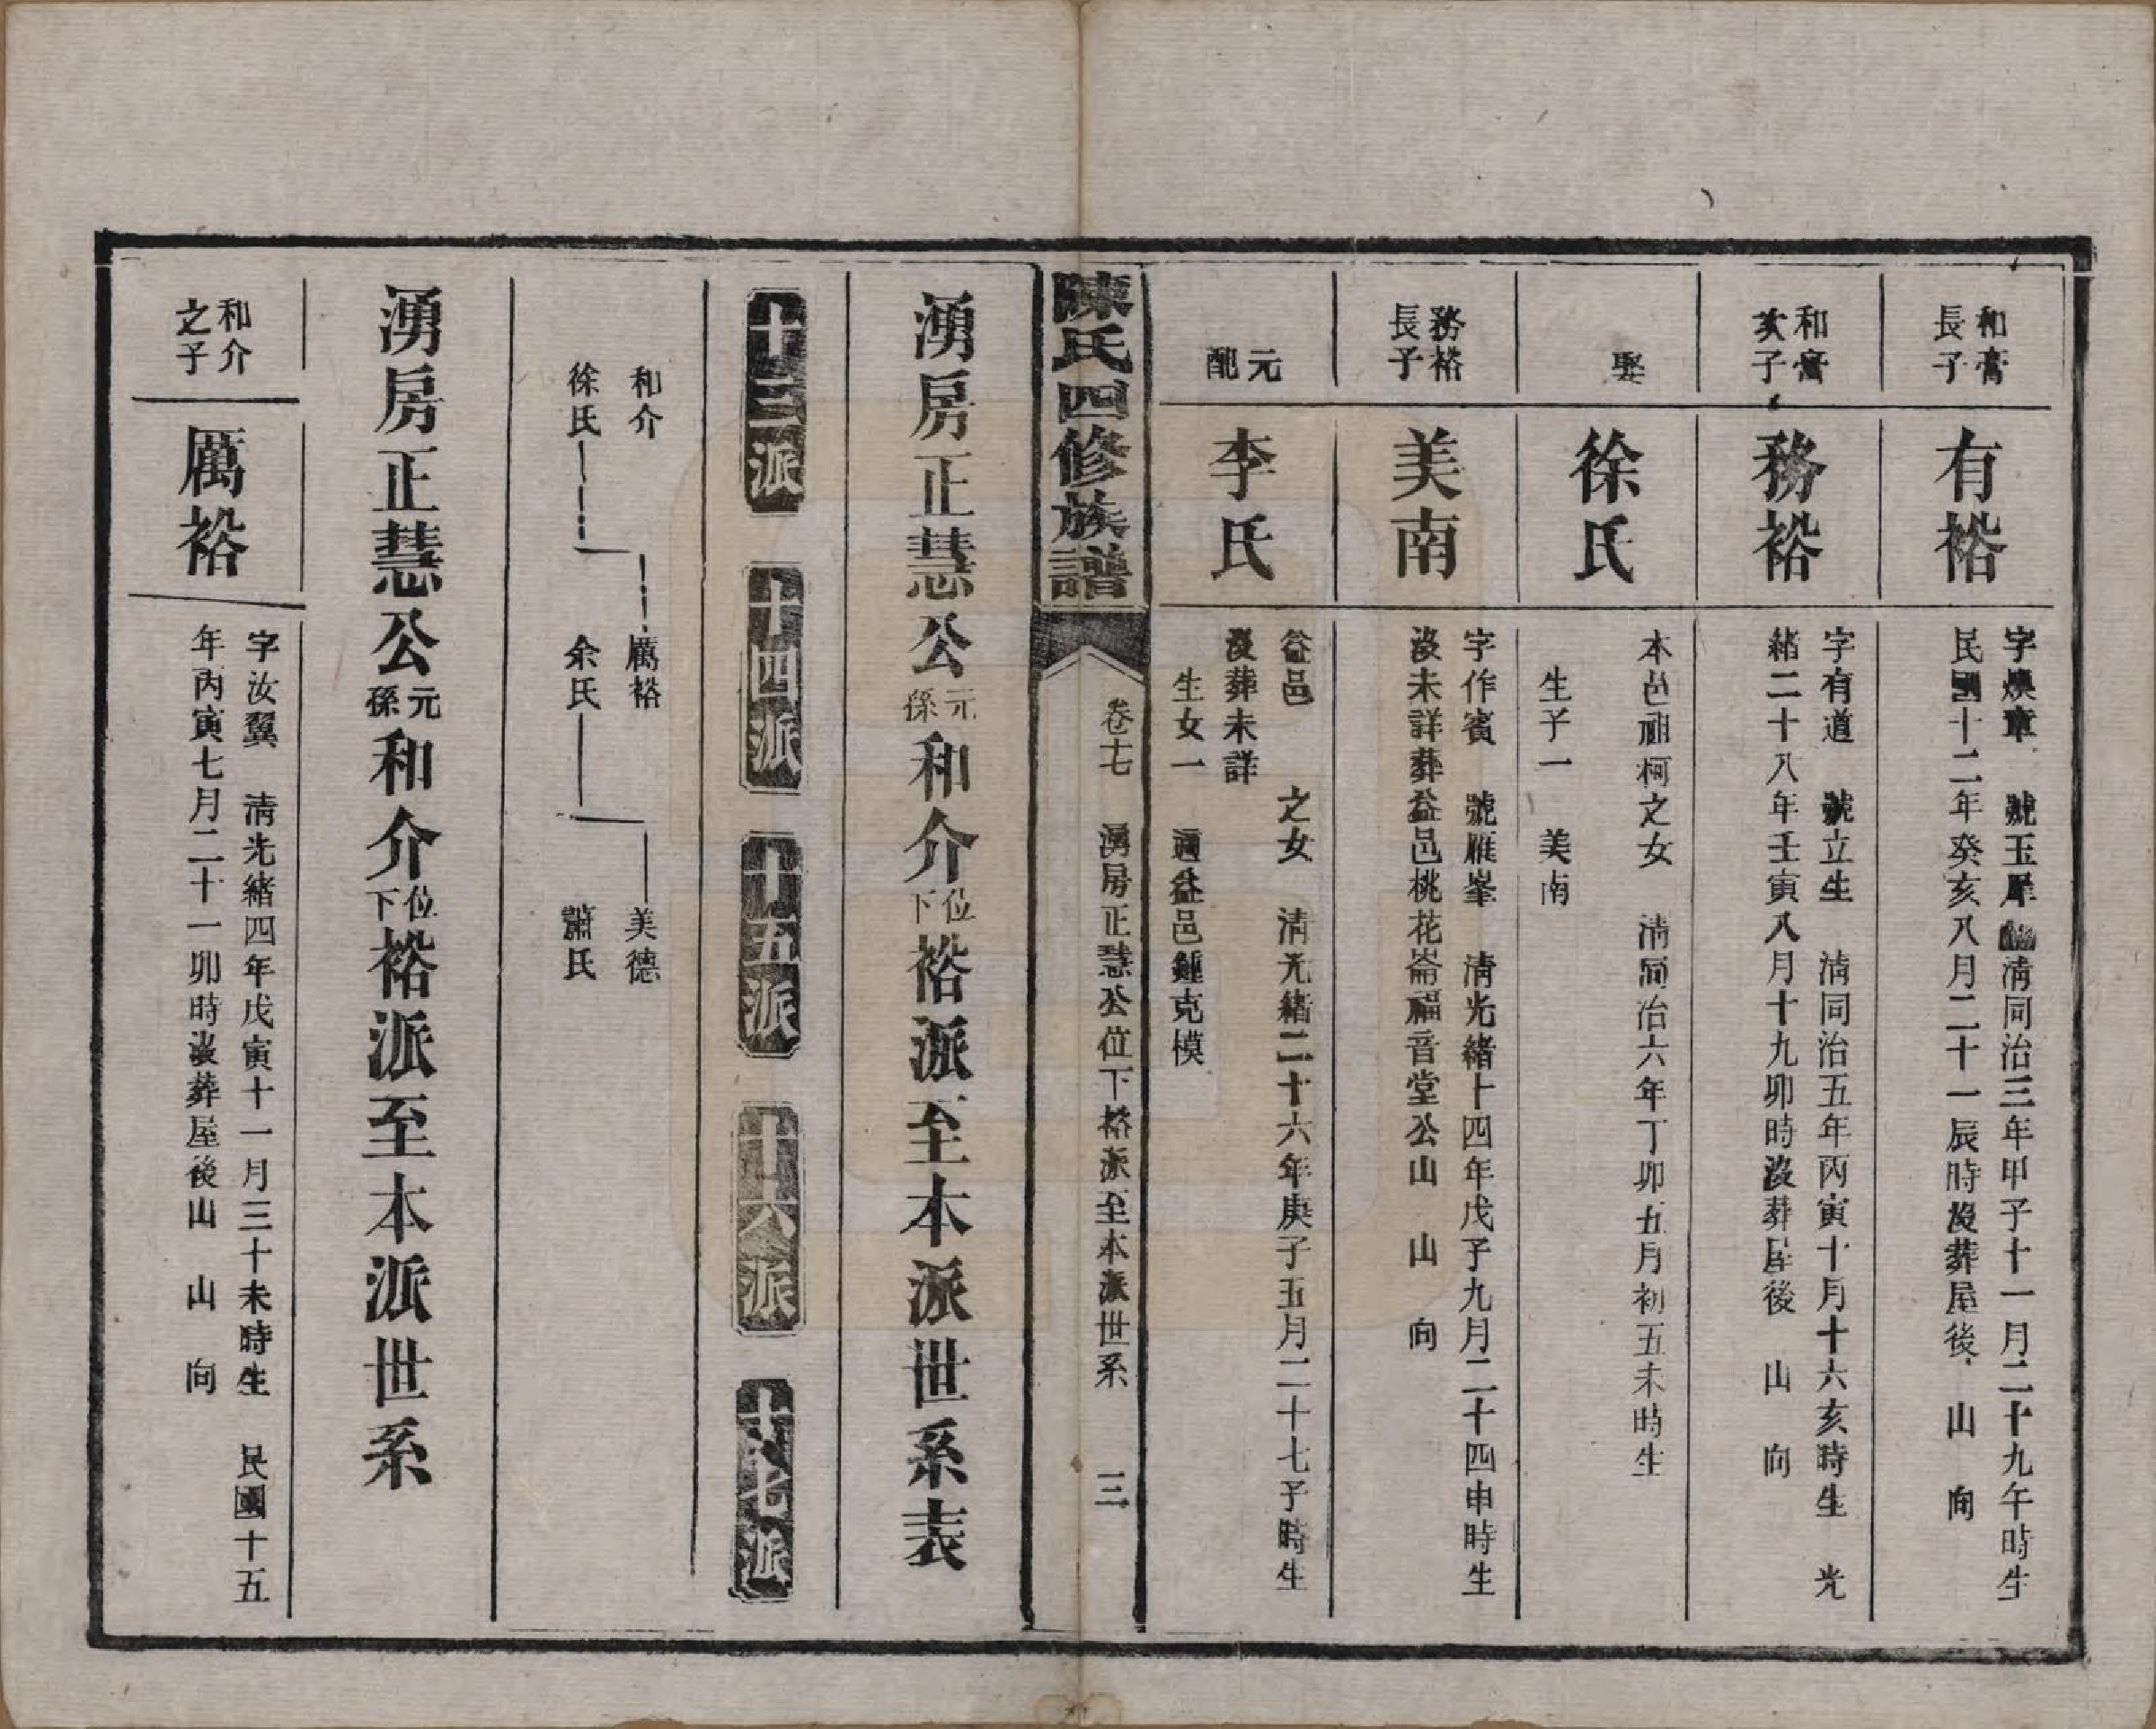 和膏
長子
有裕
字煥章　號玉犀　清同治三年甲子十一月二十九午時生
民國十二年癸亥八月二十一辰時沒葬屋後　山　向
和膏
次子
務裕
字有道　號立生　清同治五年丙寅十月十六亥時生　光
緒二十八年壬寅八月十九卯時沒葬屋後　山　向
娶
徐氏
本邑祖柯之女　清同治六年丁卯五月初五未時生
生子一　美南
務裕
長子
美南
字作賓　號雁峯　清光緒十四年戊子九月二十四申時生
沒未詳葬益邑桃花崙福音堂公山　山　向
元
配
李氏
益邑　　之女　清光緒二十六年庚子五月二十七子時生
沒葬未詳
生女一　適益邑鍾克模
陳氏四修族譜
卷十七　湧房正慧公位下裕派至本派世系　三
湧房正慧公元孫和介位下裕派至本派世系表
十三派　十四派　十五派　十六派　十七派
和介　厲裕　美德
徐氏　余氏　蕭氏
湧房正慧公元孫和介位下裕派至本派世系
和介
之子
厲裕
字汝翼　清光緒四年戊寅十一月三十未時生　民國十五
年丙寅七月二十一卯時沒葬屋後山　山　向